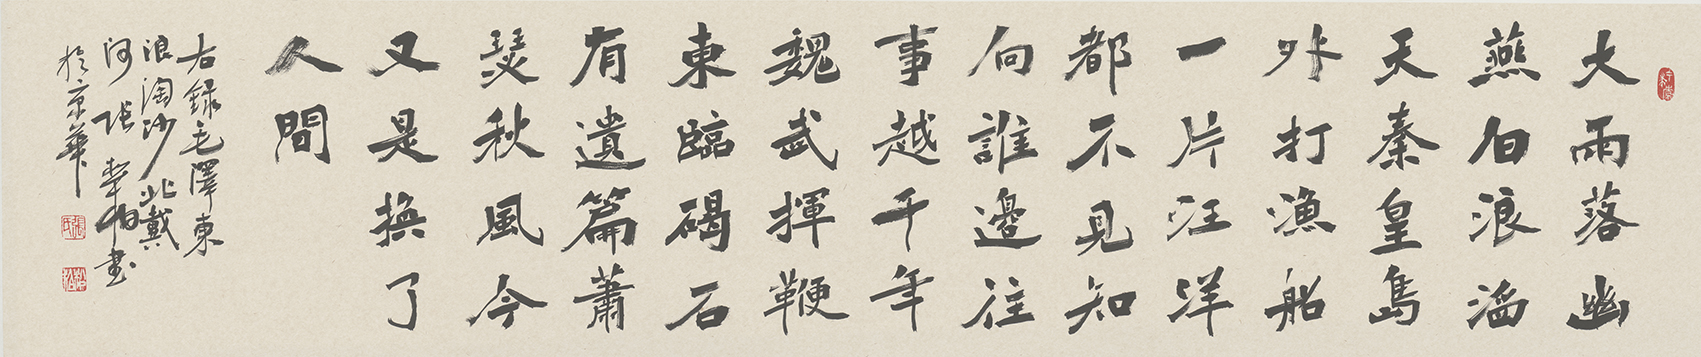 大雨落幽
燕白浪滔
天秦皇島
外打漁船
一片汪洋
都不見知
向誰邊往
事越千年
魏武揮鞭
東臨碣石
有遺篇蕭
瑟秋風今
又是換了
人間
右録毛澤東
浪淘沙北戴
河 张 书
於京華